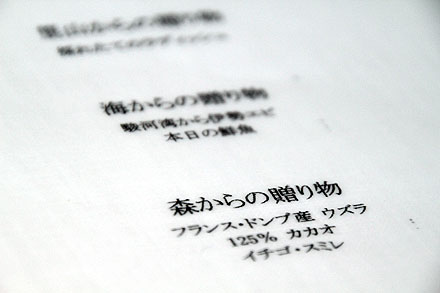 里山からの贈り物
採れたてのラディッシュ
海からの贈り物
駿河湾から伊勢エビ
本日の鮮魚
森からの贈り物
フランス・ドンブ産 ウズラ
125% カカオ
イチゴ・スミレ